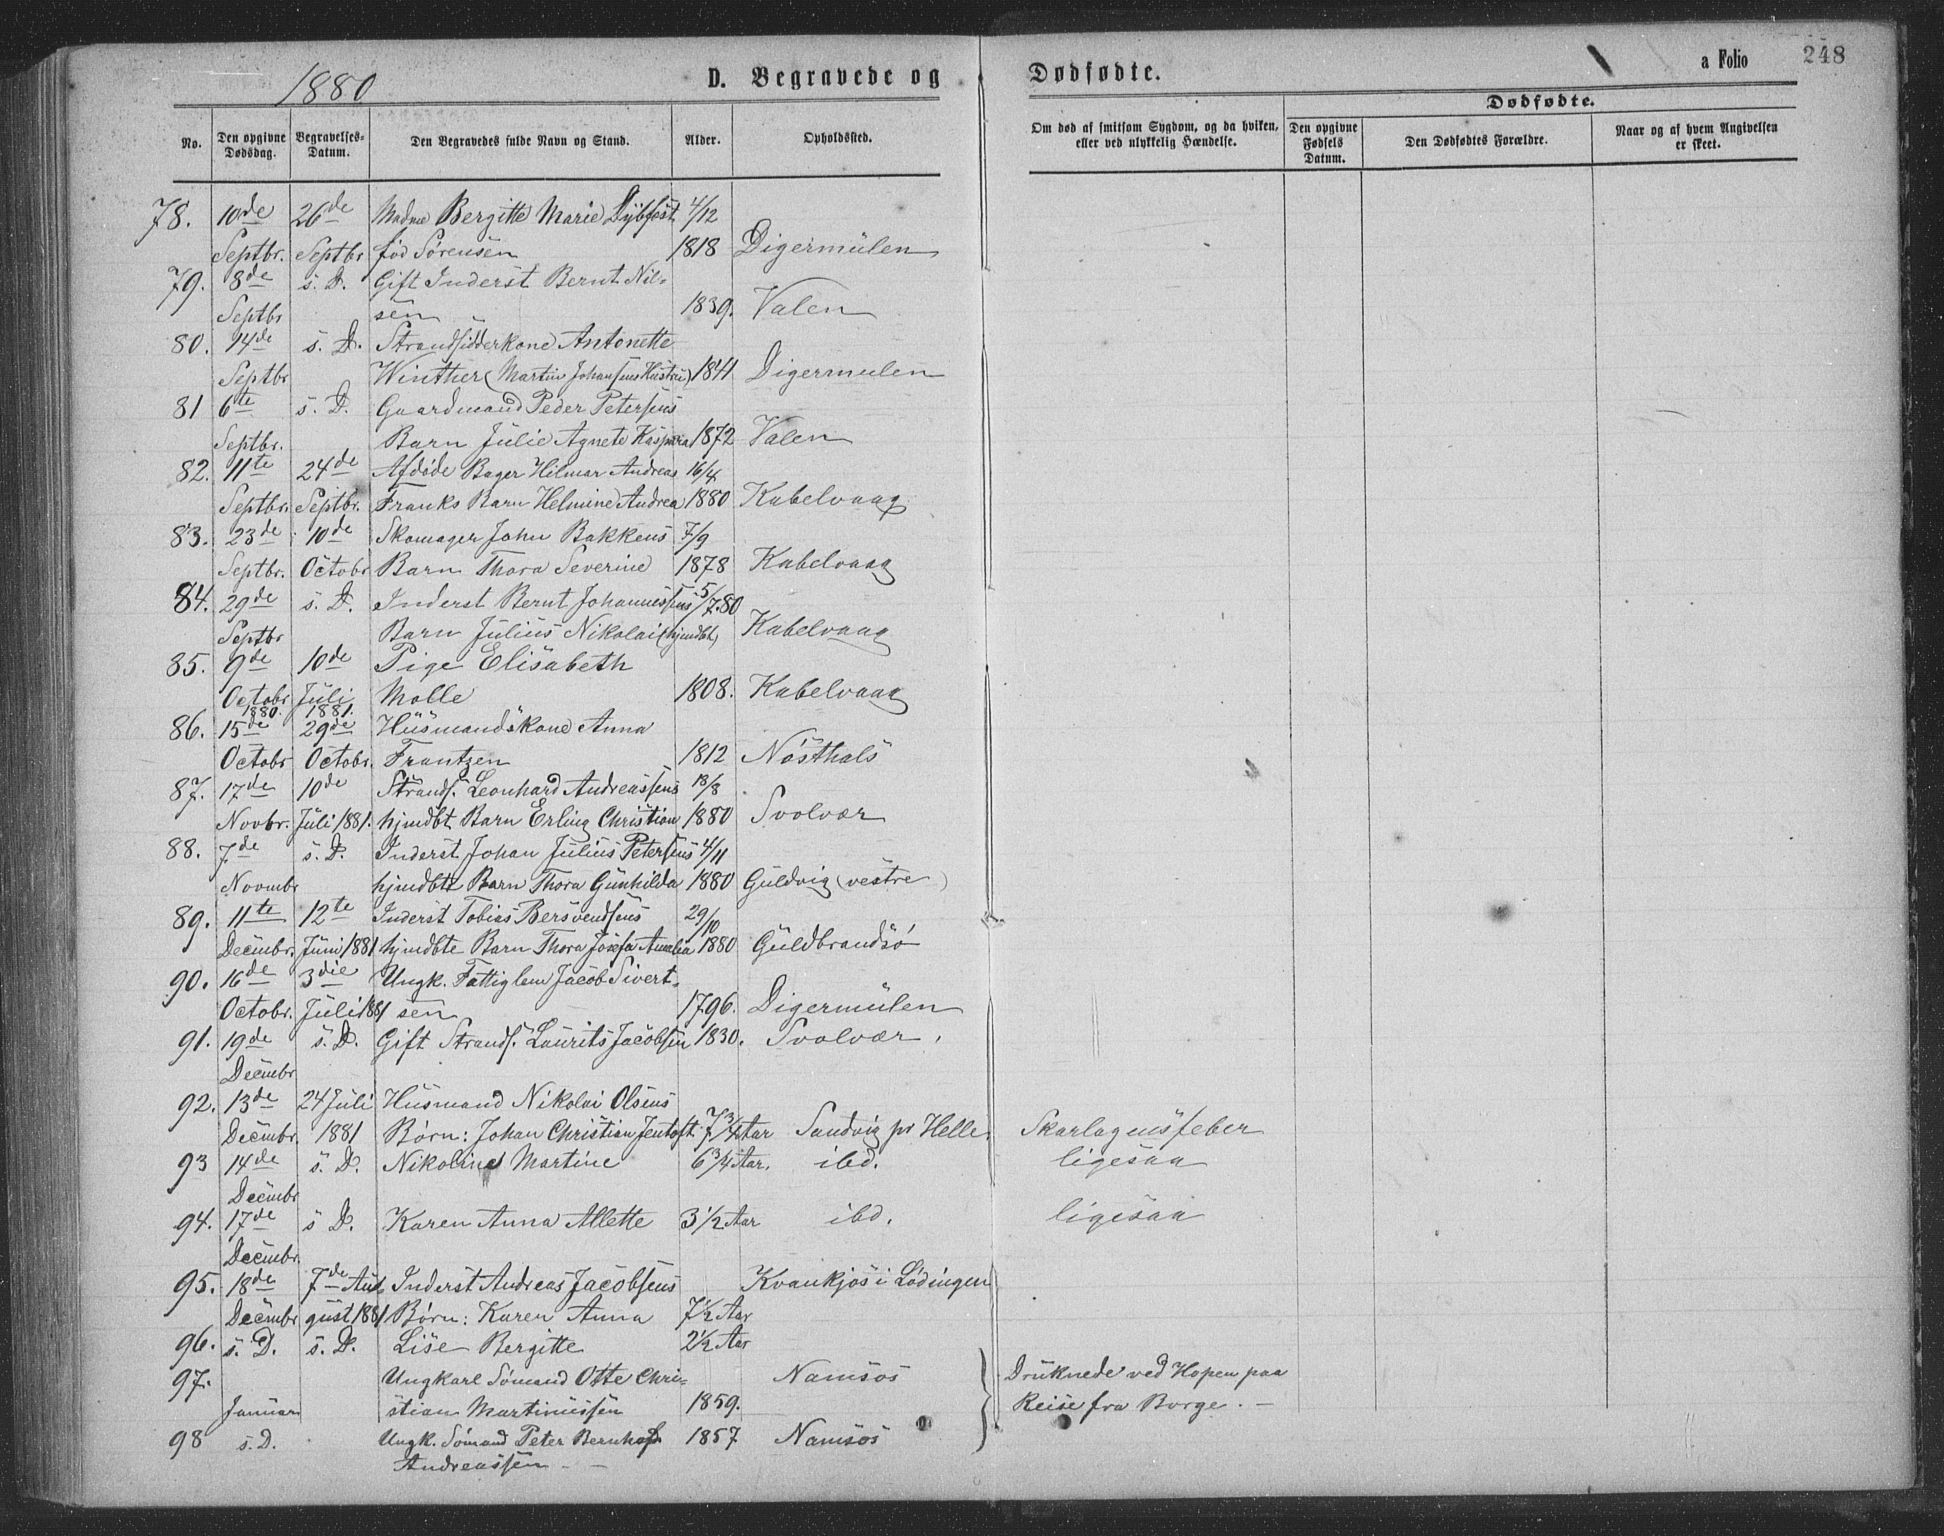 1880
D. Begravede og Dødfødte.
a Folio 248
No. Den opgivne Dødsdag. Begravelses-Datum. Den Begravedes fulde Navn og Stand. Alder. Opholdssted. Om død af smitsom Sygdom, og da hvilken, eller ved ulykkelig Hændelse. Dødfødte. Den opgivne Fødsels Datum. Den Dødfødtes Forældre. Naar og af hvem Angivelsen er skeet.
78. 10de 26de Madme Bergitte Marie Dybfest 4/12
Septbr. Septbr fød Sørensen 1818 Digermulen
79. 8de s. D. Gift Inderst Bernt Nil-
Septbr sen 1839. Valen
80. 14de s. D. Strandsidderkone Antonette
Septbr Winther (Martin Johansens Hustru) 1841 Digermulen
81 6te s. D. Gaardmand Peder Petersens
Septbr. Barn Julie Agnete Kaspara 1872 Valen
82. 11te 24de Afdøde Bager Hilmar Andreas 16/4
Septbr. Septbr. Franks Barn Helmine Andrea 1880 Kabelvaag
83. 23de 10de Skomager John Bakkens 7/9
Septbr. Octobr Barn Thora Severine 1878 Kabelvaag
84. 29de s. D. Inderst Bernt Johannessens 5/7.80
Septbr Barn Julius Nikolai (hjmdbt) Kabelvaag
85. 9de 10de Pige Elisabeth
Octobr 1880. Juli 1881. Molle 1808. Kabelvaag
86. 15de 29de Husmandskone Anna
Octobr Octobr. Frantzen 1812 Nösthals
87. 17de 10de Strands. Leonhard Andreassens 18/8
Novbr. Juli 1881. hjmdbt Barn Erling Christian 1880 Svolvær
88. 7de s. D. Inderst Johan Julius Petersens 4/11
Novmbr hjmdbte Barn Thora Gunhilda 1880 Guldvig (vestre)
89. 11te 12te Inderst Tobias Bersvendsens 29/10
Decmbr. Juni 1881 hjmdbte Barn Thora Josefa Amalia 1880 Guldbrandsö
90. 16de 3die Ungk. Fattiglem Jacob Sivert-
Octobr. Juli 1881 sen 1796. Digermulen
91. 19de s. D. Gift Strands. Laurits Jacobsen 1830. Svolvær.
Decmbr
92. 13de 24 Juli Husmand Nikolai Olsens
Decmbr. 1881 Børn: Johan Christian Jentoft 7 3/4 Aar Sandvig pr Helle. Skarlagensfeber
93 14de s. D. Nikoline Martine 6 3/4 Aar. ibd. ligesaa
Decmbr
94. 17de s D. Karen Anna Allette 3 1/2 Aar ibd. ligesaa
Decmbr.
95. 18de 7de Au- Inderst Andreas Jacobsens Kvankjos i Lødingen
Decmbr gust 1881 Børn: Karen Anna 7 1/2 Aar
96. s. D. s. D. Lise Bergitte 2 1/2 Aar
97. Ungkarl Sømand Otte Chri- Namsos Druknede ved Hopen paa
Januar stian Martinussen 1859. Reise fra Borge. —
98 s. D. Ungk. Sømand Peter Bernhof 1857 Namsos
Andreassen